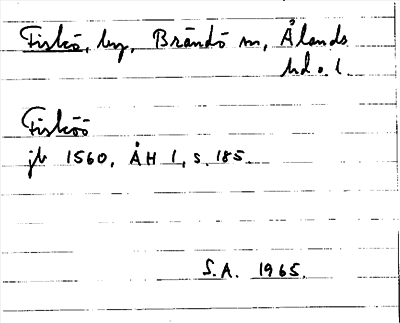 Fiskö, by, Brändö sn, Ålands
hd o. l.
Fisköö
jb 1560, ÅH 1, s. 185.
S.A. 1965.